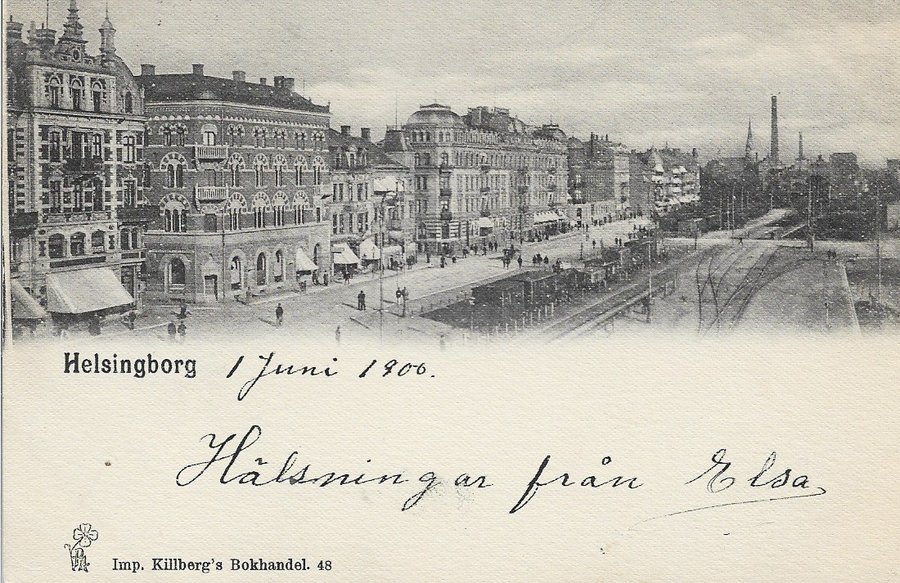 Helsingborg 1 Juni 1900.
Hälsningar från Elsa
Imp. Killberg's Bokhandel. 48